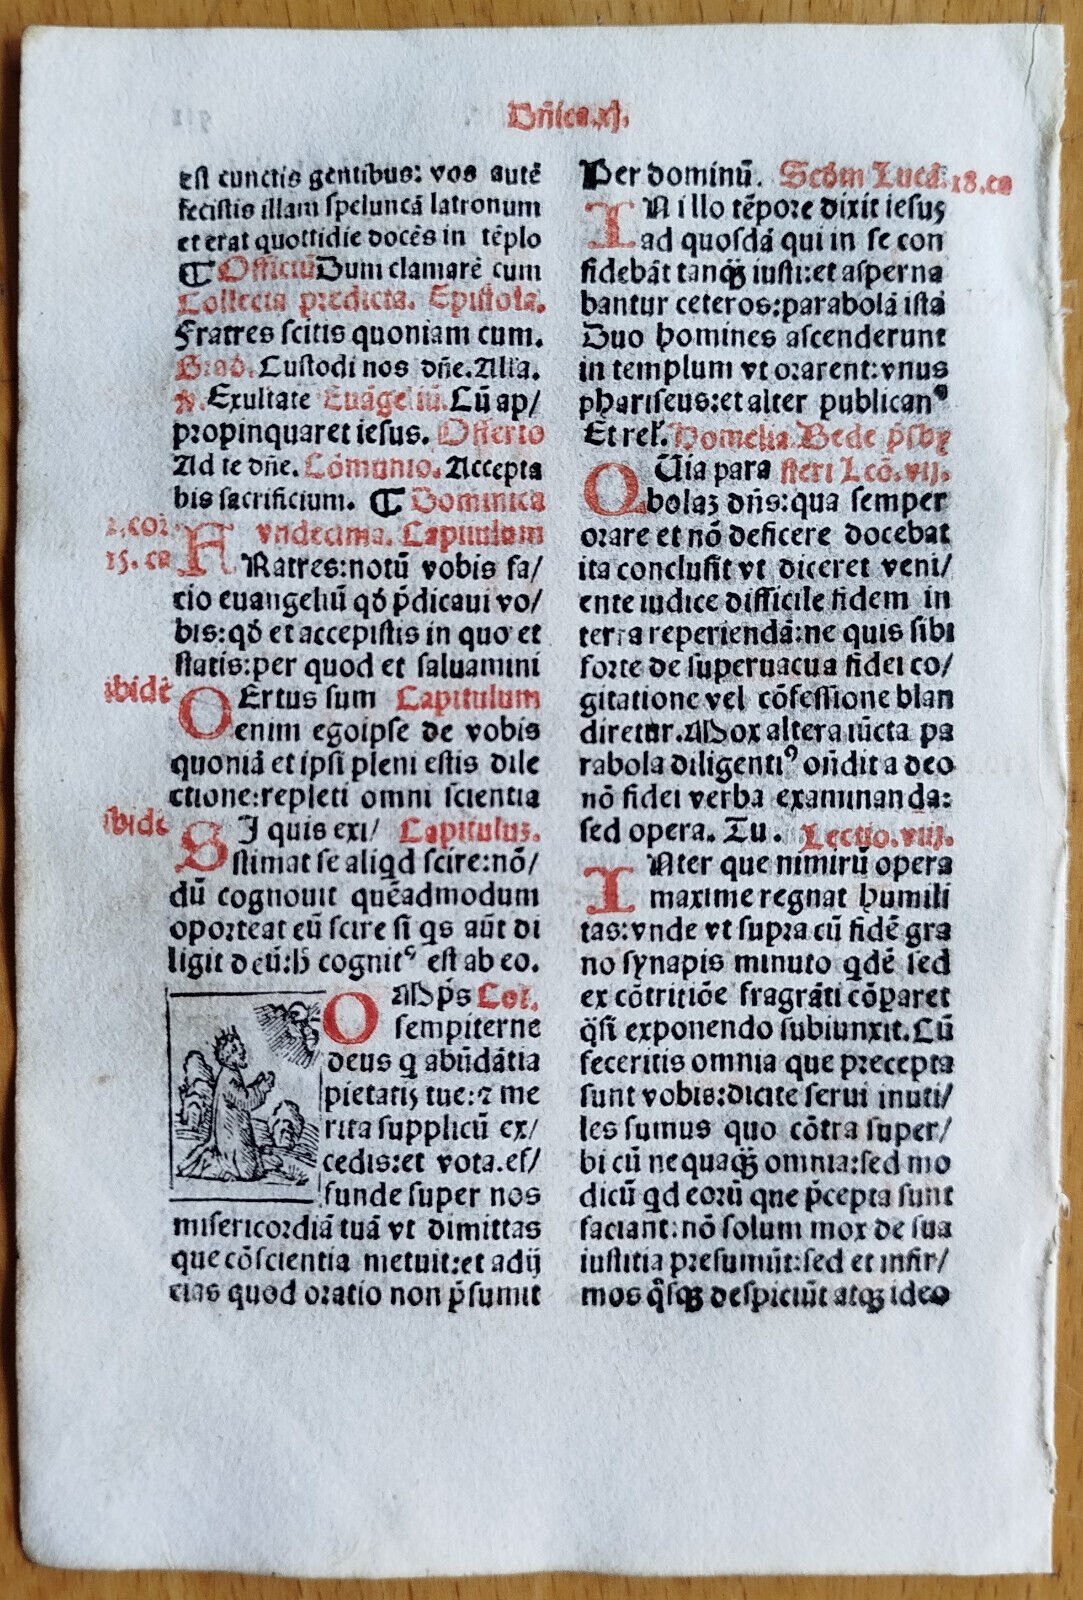 Dñica.xj.
est cunctis gentibus: vos autē
fecistis illam speluncā latronum
et erat quottidie docēs in tēplo
¶ Officiū Dum clamarē cum
Collecta predicta. Epistola.
Fratres scitis quoniam cum.
Grad. Custodi nos dñe. Alla.
℣. Exultate Euāgeliū. Cū ap/
propinquaret iesus. Offerto
Ad te dñe. Cōmunio. Accepta
bis sacrificium. ¶ Dominica
vndecima. Capitulum
1.cor.
15.ca
FRatres: notū vobis fa/
cio euangeliū qđ p̄dicaui vo/
bis: qđ et accepistis in quo et
statis: per quod et saluamini
ibidē
CErtus sum Capitulum
enim egoipse de vobis
quoniā et ipsi pleni estis dile
ctione: repleti omni scientia
ibidē
SI quis exi/ Capituluz.
stimat se aliqd scire: nō/
dū cognouit quēadmodum
oporteat eū scire si qs aūt di
ligit deū: h̄ cognitꝰ est ab eo.
OMp̄s Col.
sempiterne
deus q abūdātia
pietatis tue: ⁊ me
rita supplicū ex/
cedis: et vota. ef/
funde super nos
misericordiā tuā vt dimittas
que cōscientia metuit: et adij
cias quod oratio non p̄sumit
Per dominū. Scđm Lucā. 18.ca
IN illo tēpore dixit iesus
ad quosdā qui in se con
fidebāt tanqꝫ iusti: et asperna
bantur ceteros: parabolā istā
Duo homines ascenderunt
in templum vt orarent: vnus
phariseus: et alter publicanꝰ
Et rel. Homelia Bede p̄sby
QUia para steri Lcō. vij.
bolaz dñs: qua semper
orare et nō deficere docebat
ita conclusit vt diceret veni/
ente iudice difficile fidem in
terra reperiendā: ne quis sibi
forte de superuacua fidei co/
gitatione vel cōfessione blan
diretur. Mox altera iūcta pa
rabola diligentiꝰ oñdit a deo
nō fidei verba examinanda:
sed opera. Tu. Lectio. viij.
INter que nimirū opera
maxime regnat humili
tas: vnde vt supra cū fidē gra
no synapis minuto qdē sed
ex cōtritiōe fragrāti cōparet
q̄si exponendo subiunxit. Cū
feceritis omnia que precepta
sunt vobis: dicite serui inuti/
les sumus quo cōtra super/
bi cū nequaqꝫ omnia: sed mo
dicū qd eorū que p̄cepta sunt
faciant: nō solum mox de sua
iustitia presumūt: sed et infir/
mos q̄sqꝫ despiciūt atqꝫ ideo